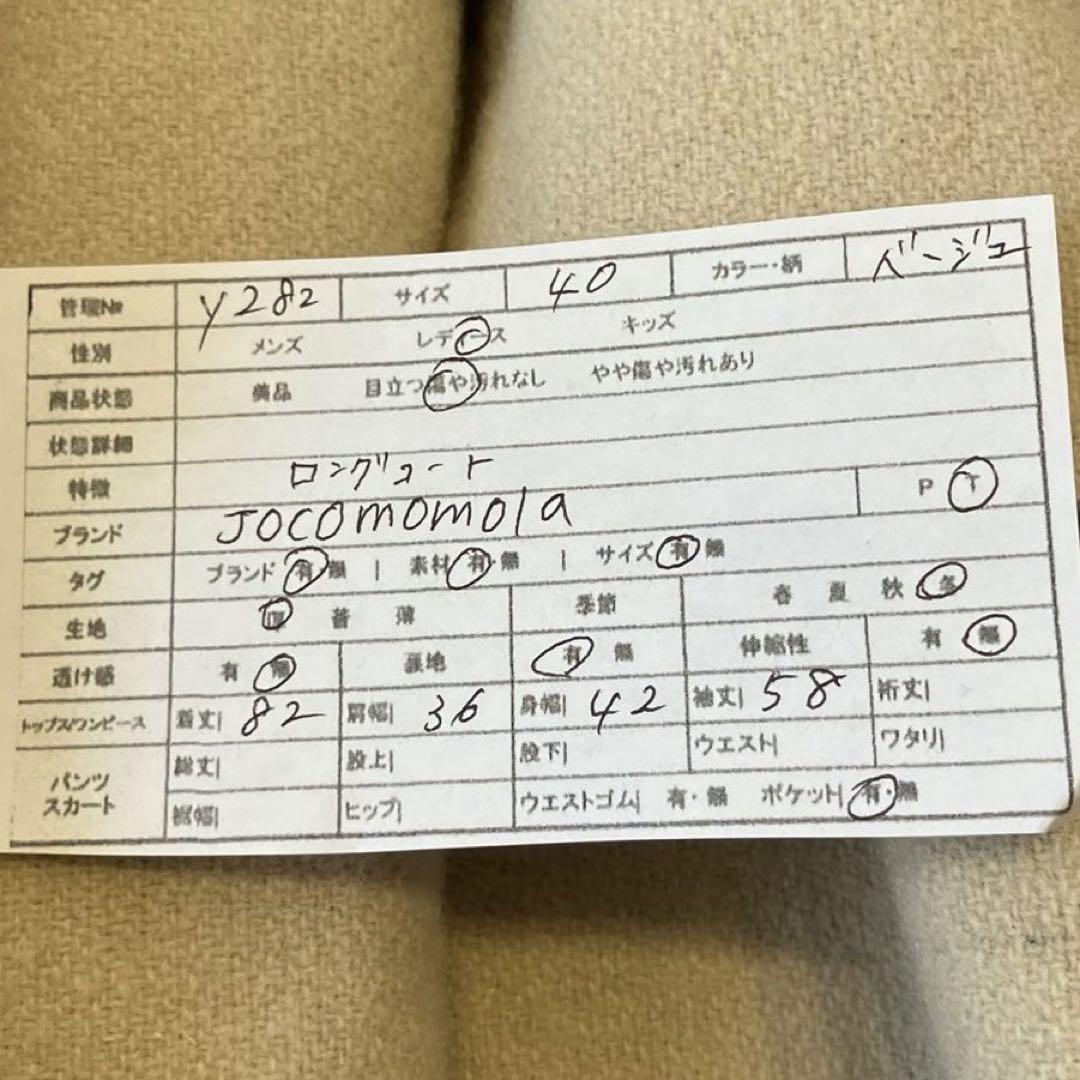 管理№ y282 サイズ 40 カラー・柄 ベージュ
性別 メンズ レディース キッズ
商品状態 美品 目立つ傷や汚れなし やや傷や汚れあり
状態詳細
特徴 ロングコート
ブランド JOCOmomola P T
タグ ブランド 有・無 | 素材 有・無 | サイズ 有・無
生地 厚 普 薄 季節 春 夏 秋 冬
透け感 有 無 裏地 有 無 伸縮性 有 無
トップス/ワンピース 着丈| 82 肩幅| 36 身幅| 42 袖丈| 58 裄丈|
パンツ 総丈| 股上| 股下| ウエスト| ワタリ|
スカート 裾幅| ヒップ| ウエストゴム| 有・無 ポケット| 有・無